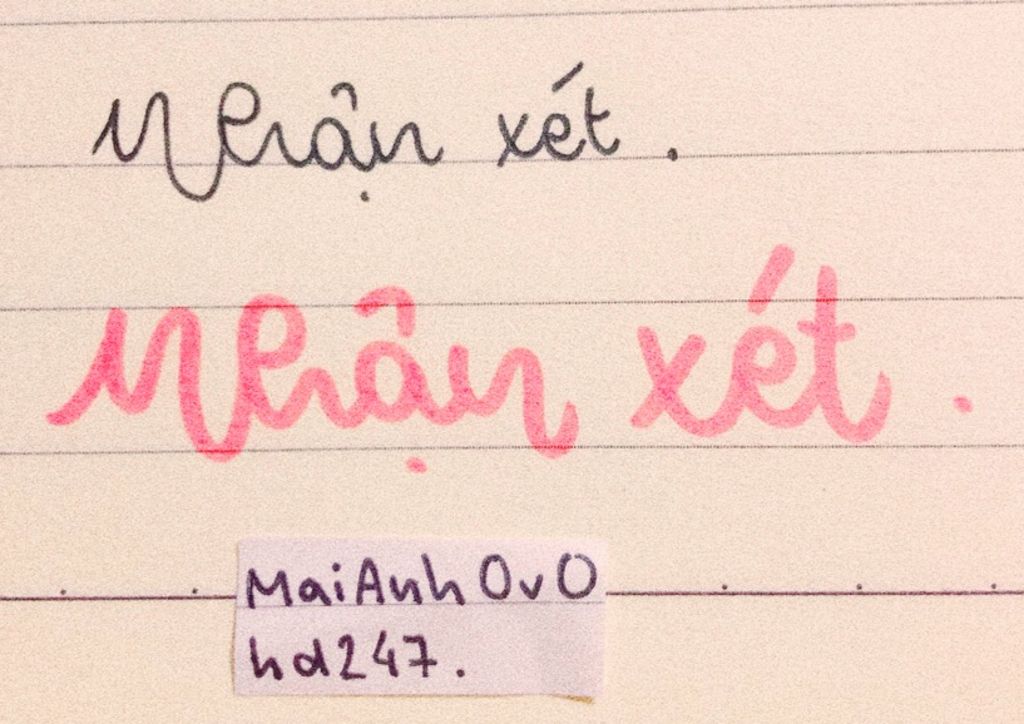 Nhận xét .
Nhận xét .
MaiAnh OvO
hd247.